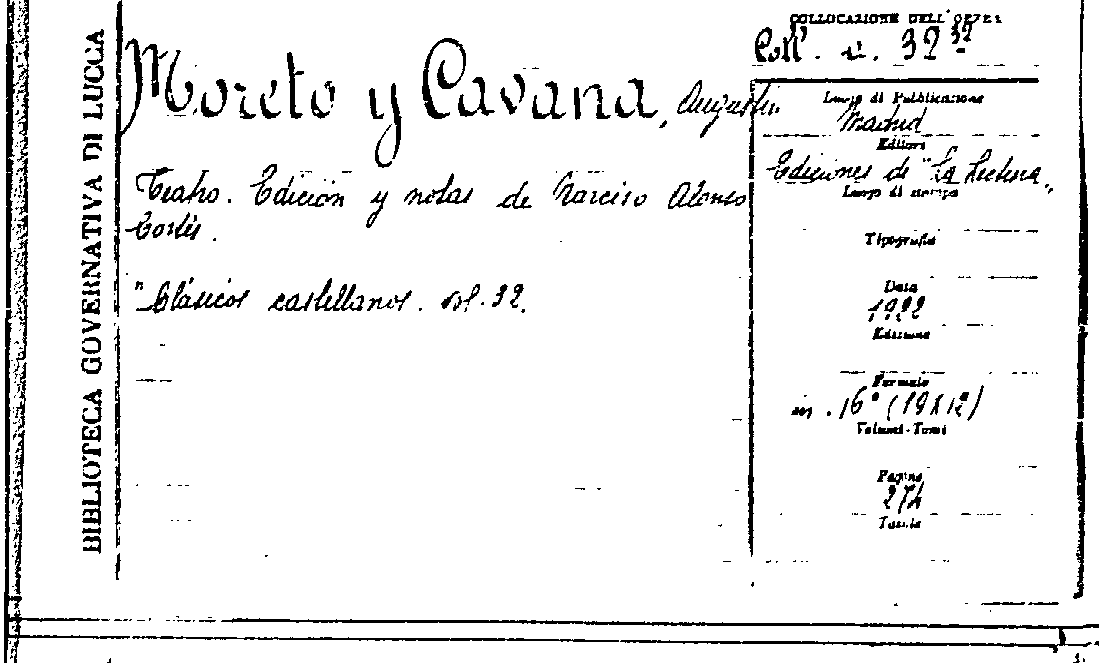 BIBLIOTECA GOVERNATIVA DI LUCCA
Moreto y Cavana, Augustin
Teatro. Edición y notas de Narciso Alonso
Cortés.
"Clásicos castellanos. vol. 32.
COLLOCAZIONE DELL'OPERA
Coll. v. 32
Luogo di Pubblicazione
Madrid
Editore
Ediciones de "La Lectura"
Luogo di stampa
Tipografia
Data
1922
Edizione
Formato
in. 16° (19x12)
Volumi-Tomi
Pagine
274
Tavole